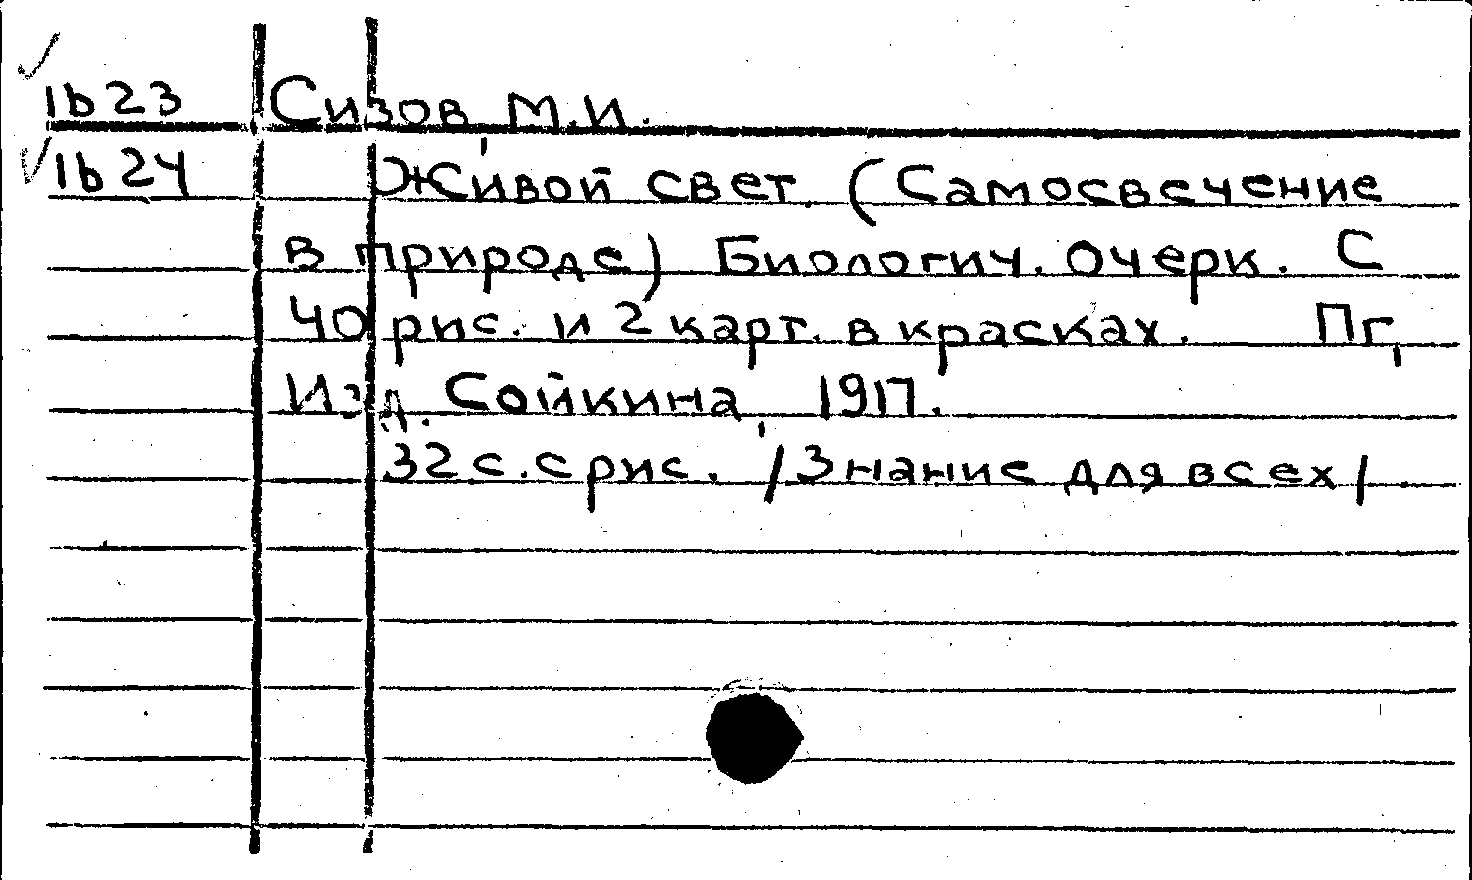 1b23 Сизов, М.И.
1b24 Живой свет. (Самосвечение
в природе) Биологич. очерк. С
40 рис. и 2 карт. в красках. Пг,
Изд. Сойкина, 1917.
32 с. с рис. /Знание для всех/